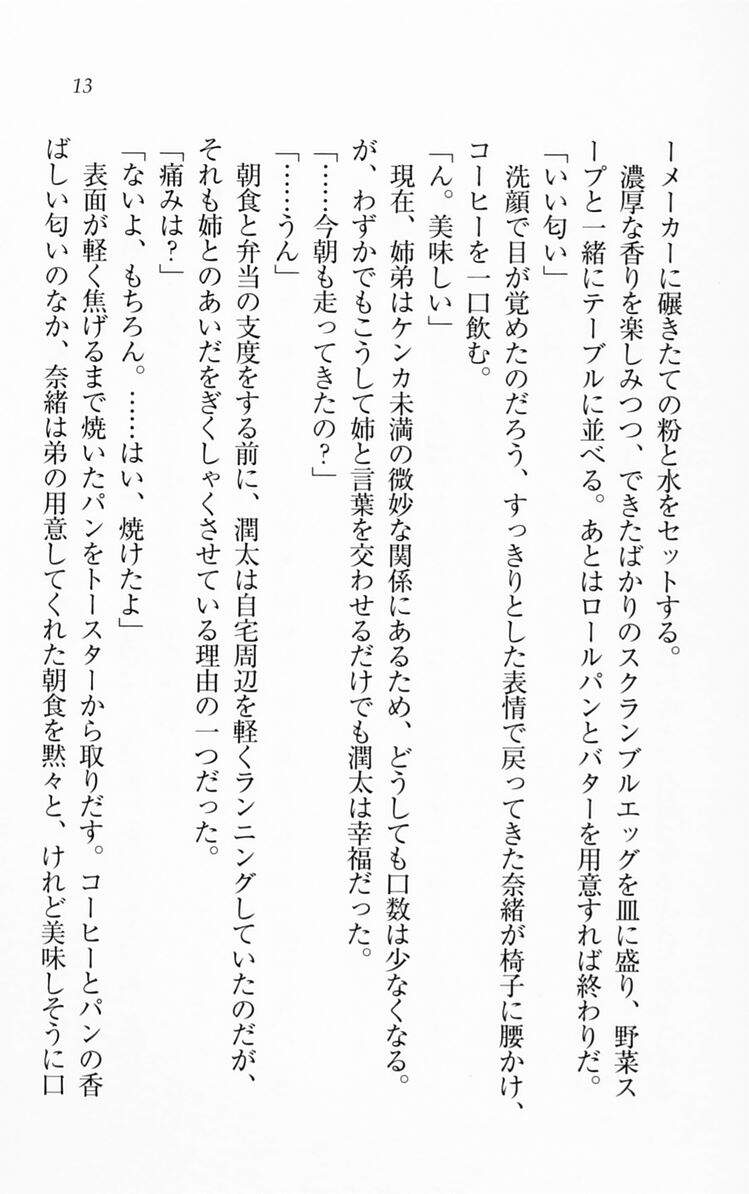 13
ーメーカーに碾きたての粉と水をセットする。
　濃厚な香りを楽しみつつ、できたばかりのスクランブルエッグを皿に盛り、野菜ス
ープと一緒にテーブルに並べる。あとはロールパンとバターを用意すれば終わりだ。
「いい匂い」
　洗顔で目が覚めたのだろう、すっきりとした表情で戻ってきた奈緒が椅子に腰かけ、
コーヒーを一口飲む。
「ん。美味しい」
　現在、姉弟はケンカ未満の微妙な関係にあるため、どうしても口数は少なくなる。
が、わずかでもこうして姉と言葉を交わせるだけでも潤太は幸福だった。
「……今朝も走ってきたの？」
「……うん」
　朝食と弁当の支度をする前に、潤太は自宅周辺を軽くランニングしていたのだが、
それも姉とのあいだをぎくしゃくさせている理由の一つだった。
「痛みは？」
「ないよ、もちろん。……はい、焼けたよ」
　表面が軽く焦げるまで焼いたパンをトースターから取りだす。コーヒーとパンの香
ばしい匂いのなか、奈緒は弟の用意してくれた朝食を黙々と、けれど美味しそうに口